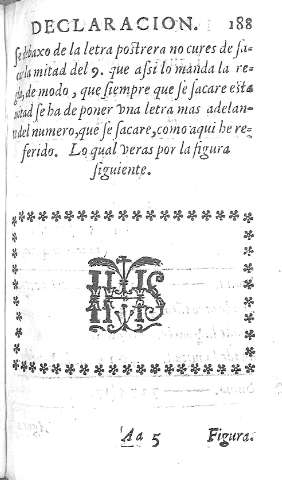 DECLARACION. 188
se debaxo de la letra postrera no cures de sa-
la mitad del 9. que assi lo manda la re-
de modo, que siempre que se sacare esta
mitad se ha de poner vna letra mas adelan-
del numero, que se sacare, como aqui he re-
ferido. Lo qual veras por la figura
siguiente.
Aa 5 Figura.